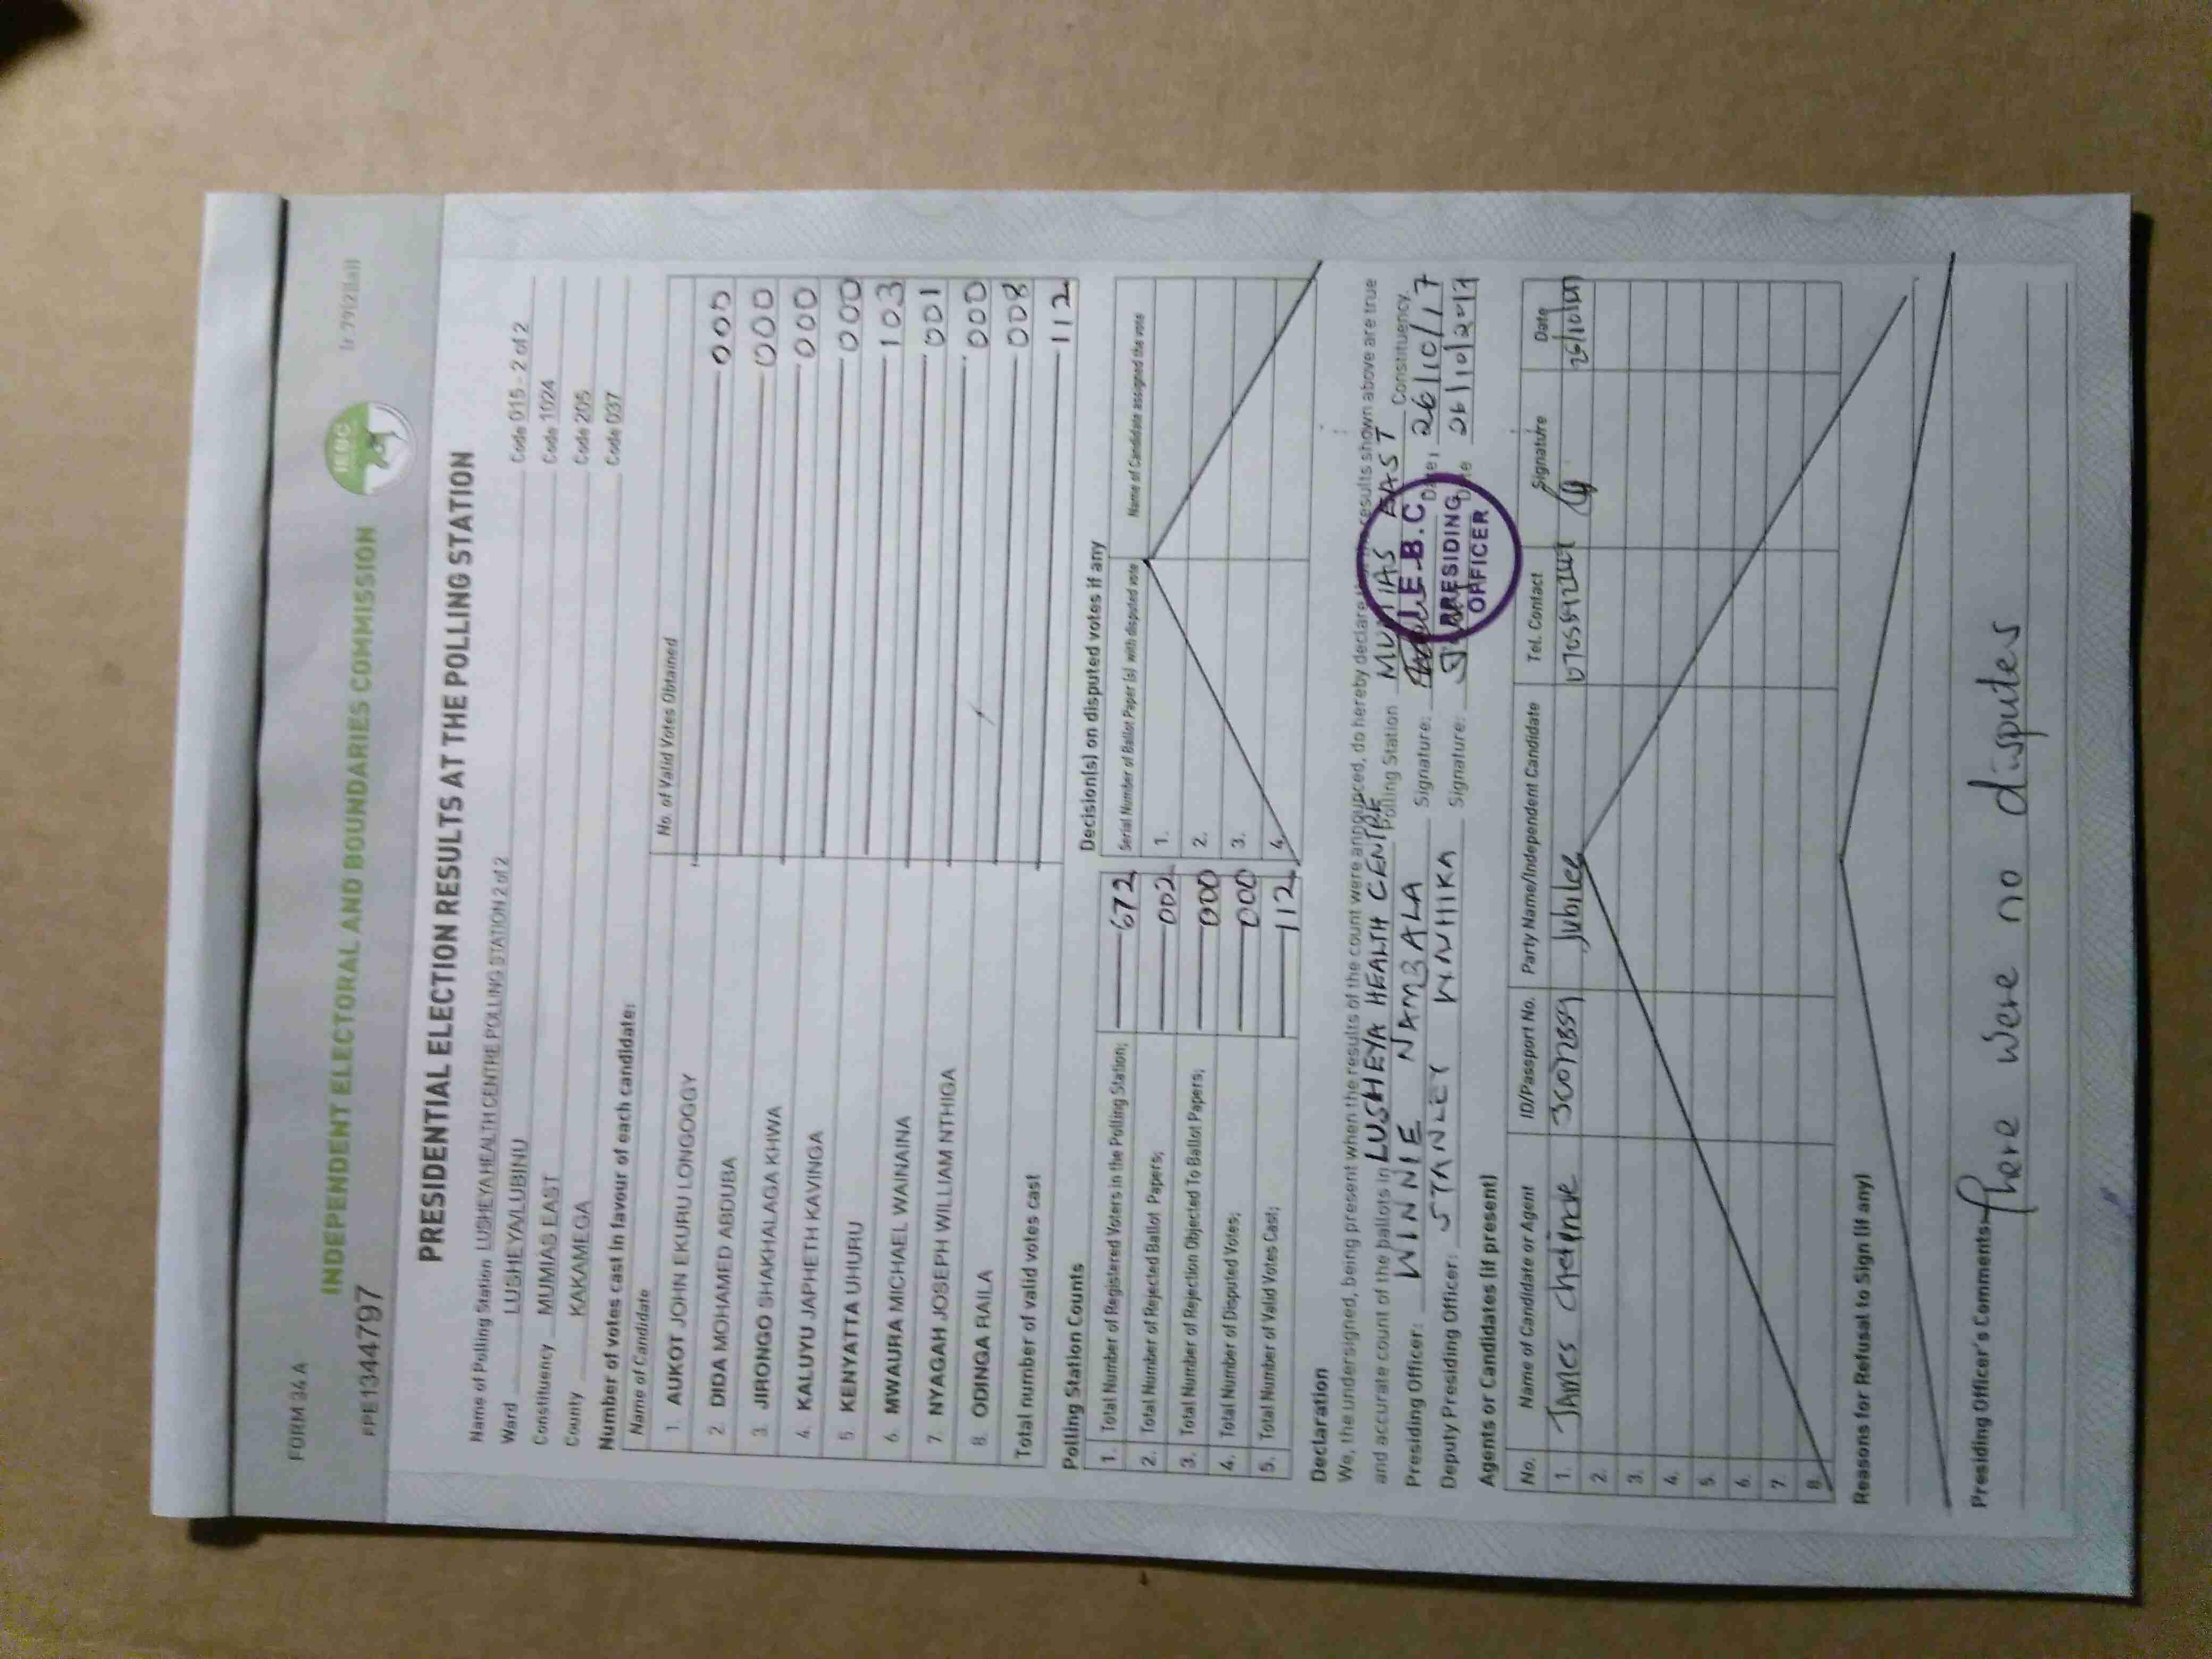 FORM 34 A
INDEPENDENT ELECTORAL AND BOUNDARIES COMMISSION
IEBC
PRESIDENTIAL ELECTION RESULTS AT THE POLLING STATION
Name of Polling Station LUSHEYA HEALTH CENTRE POLLING STATION 2 of 2 Code 015 - 2 of 2
Ward LUSHEYA/LUBINU Code 1024
Constituency MUMIAS EAST Code 205
County KAKAMEGA Code 037
Number of votes cast in favour of each candidate:
Name of Candidate No. of Valid Votes Obtained
1. AUKOT JOHN EKURU LONGOGGY 000
2. DIDA MOHAMED ABDUBA 000
3. JIRONGO SHAKHALAGA KHWA 000
4. KALUYU JAPHETH KAVINGA 000
5. KENYATTA UHURU 103
6. MWAURA MICHAEL WAINAINA 001
7. NYAGAH JOSEPH WILLIAM NTHIGA 000
8. ODINGA RAILA 008
Total number of valid votes cast 112
Polling Station Counts
1. Total Number of Registered Voters in the Polling Station; 672
2. Total Number of Rejected Ballot Papers; 002
3. Total Number of Rejection Objected To Ballot Papers; 000
4. Total Number of Disputed Votes; 000
5. Total Number of Valid Votes Cast; 112
Decision(s) on disputed votes if any
Serial Number of Ballot Paper (s) with disputed vote Name of Candidate assigned the vote
1.
2.
3.
4.
Declaration
We, the undersigned, being present when the results of the count were announced, do hereby declare results shown above are true
and accurate count of the ballots in LUSHEYA HEALTH CENTRE Polling Station MUMIAS EAST Constituency.
Presiding Officer: WINNIE NAMBALA Signature: Date: 26/10/17
Deputy Presiding Officer: STANLEY Signature: Date 26/10/2017
I.E.B.C
PRESIDING
OFFICER
Agents or Candidates (if present)
No. Name of Candidate or Agent ID/Passport No. Party Name/Independent Candidate Tel. Contact Signature Date
1. JAMES Jubilee
2.
3.
4.
5.
6.
7.
8.
Reasons for Refusal to Sign (if any)
Presiding Officer's Comments There were no disputes